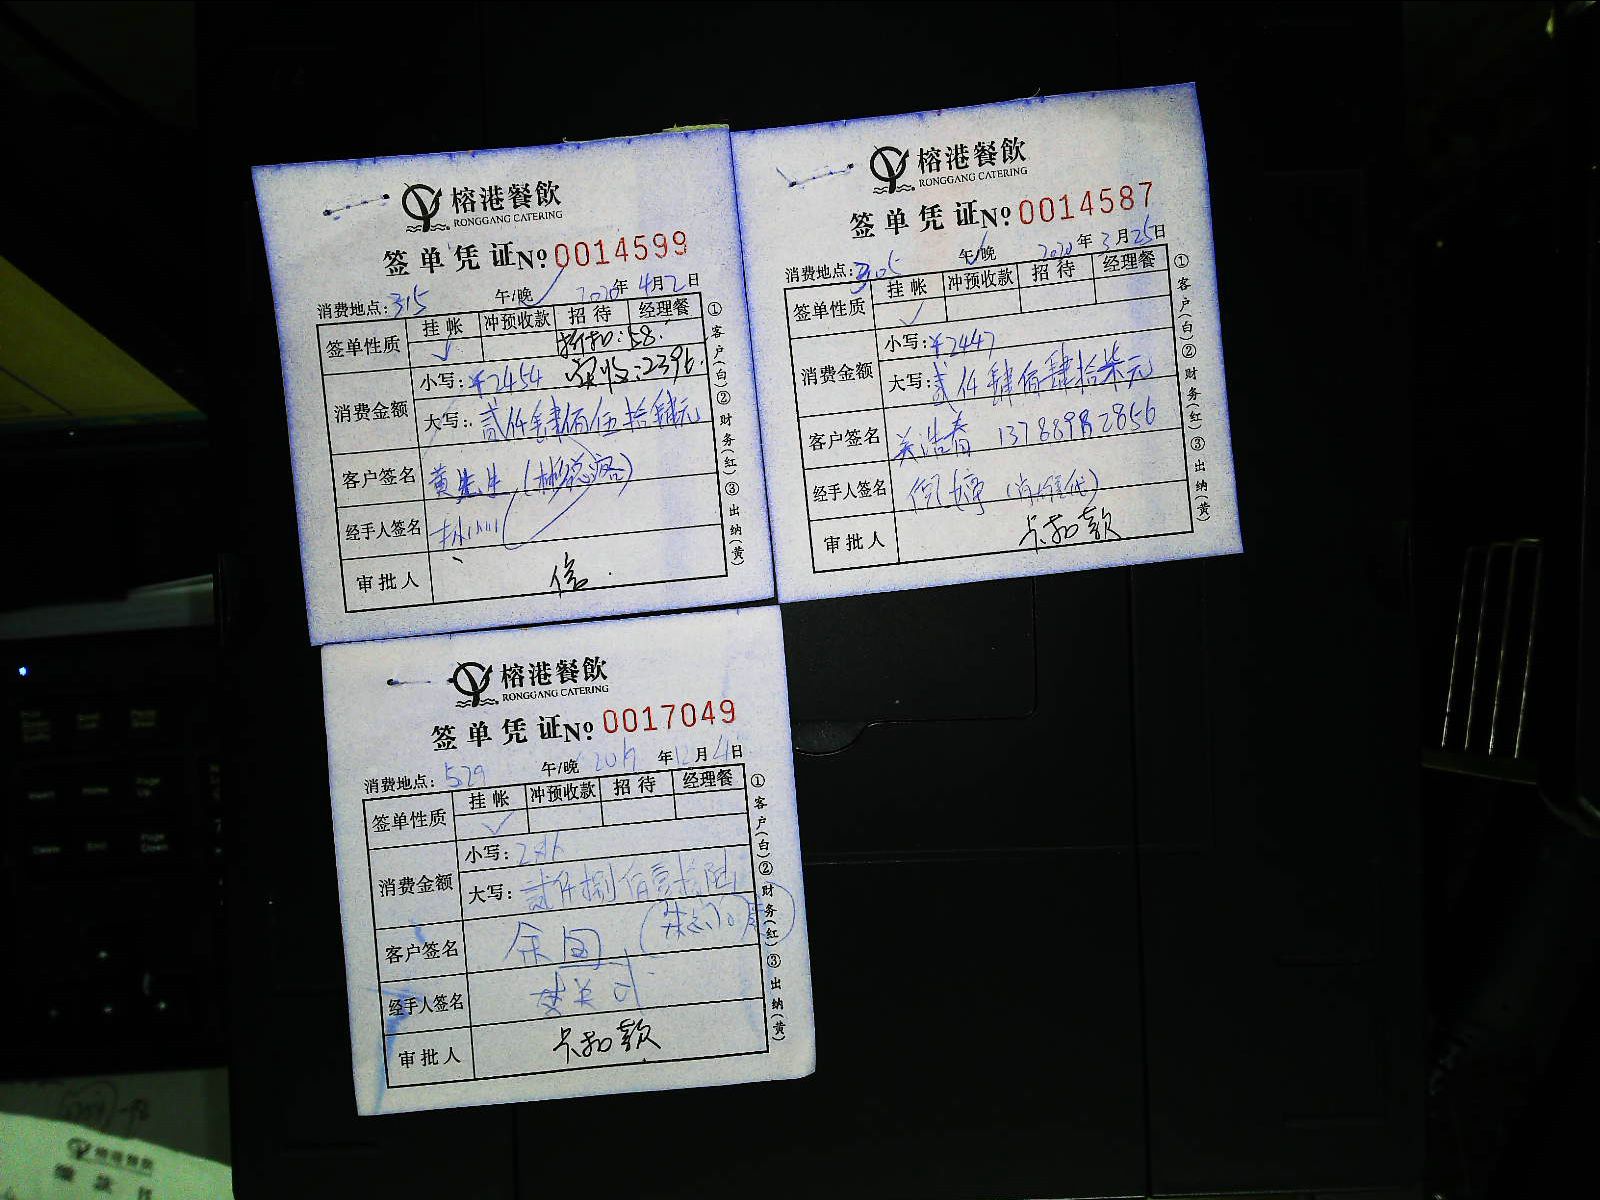 榕港餐飲
RONGGANG CATERING
签单凭证 № 0014599
消费地点:315 午/晚 2020年4月2日
签单性质 挂帐 冲预收款 招待 经理餐
✓ 折扣:58.
消费金额 小写:¥2454 实收:2396.
大写:贰仟肆佰伍拾肆元
客户签名 黄先生
经手人签名
审批人
①客户(白)②财务(红)③出纳(黄)
榕港餐飲
RONGGANG CATERING
签单凭证 № 0014587
消费地点:305 午/晚 2020年3月25日
签单性质 挂帐 冲预收款 招待 经理餐
✓
消费金额 小写:¥2447
大写:贰仟肆佰肆拾柒元
客户签名 吴浩春
经手人签名 佩婷
审批人 卡扣款
①客户(白)②财务(红)③出纳(黄)
榕港餐飲
RONGGANG CATERING
签单凭证 № 0017049
消费地点:529 午/晚 2019年12月4日
签单性质 挂帐 冲预收款 招待 经理餐
✓
消费金额 小写:2816
大写:贰仟捌佰壹拾陆
客户签名 余
经手人签名
审批人 卡扣款
①客户(白)②财务(红)③出纳(黄)
榕港餐飲